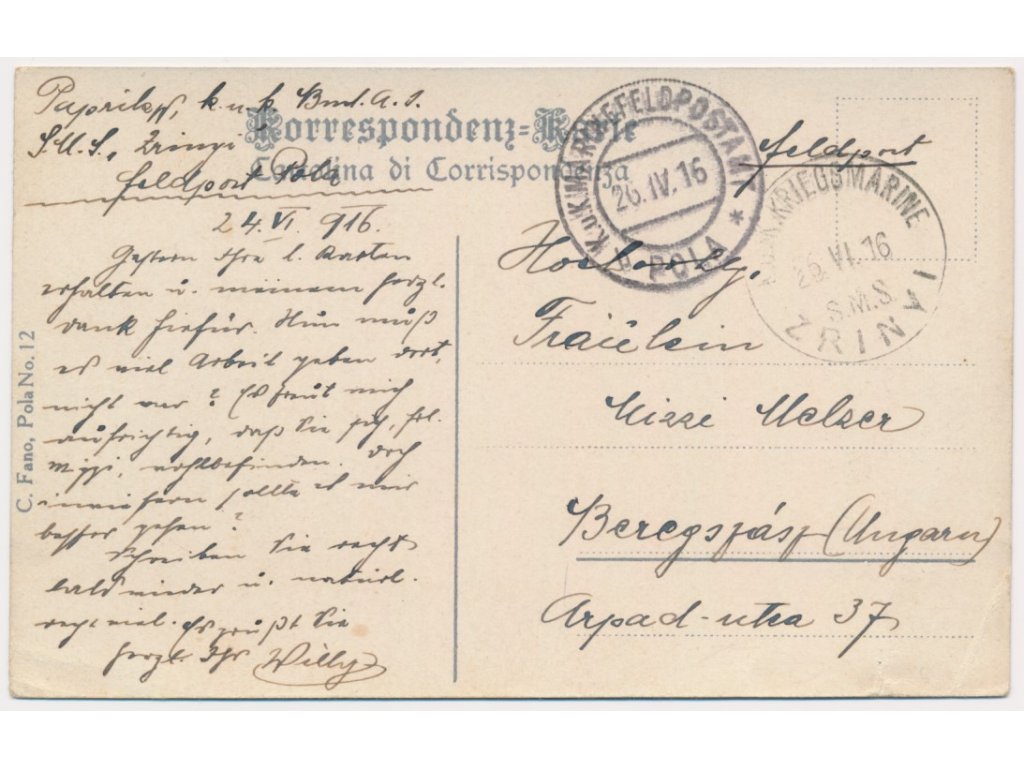 k. u. k.
S.M.S. Zrinyi
Feldpost Pola
Korrespondenz-Karte
Cartolina di Corrispondenza
K.U.K. MARINEFELDPOSTAMT
26. IV. 16
POLA
Feldpost
K.U.K. KRIEGSMARINE
26. VI. 16
S.M.S.
ZRINYI
24. VI. 916.
Gestern Ihre l. Karten
erhalten u. meinem herzl.
Dank hiefür. Nun muß
es viel Arbeit geben dort,
nicht war? Es freut mich
aufrichtig, daß Sie sich, Frl.
Mizzi, wohlbefinden. Doch
inwiefern sollte es mir
besser gehen?
Schreiben Sie recht
bald wieder u. natürl.
recht viel. Es grüßt Sie
herzl. Ihr Willy
C. Fano, Pola No. 12
Hochwolg.
Fräulein
Mizzi Melzer
Beregszász (Ungarn)
Arpad-utca 37